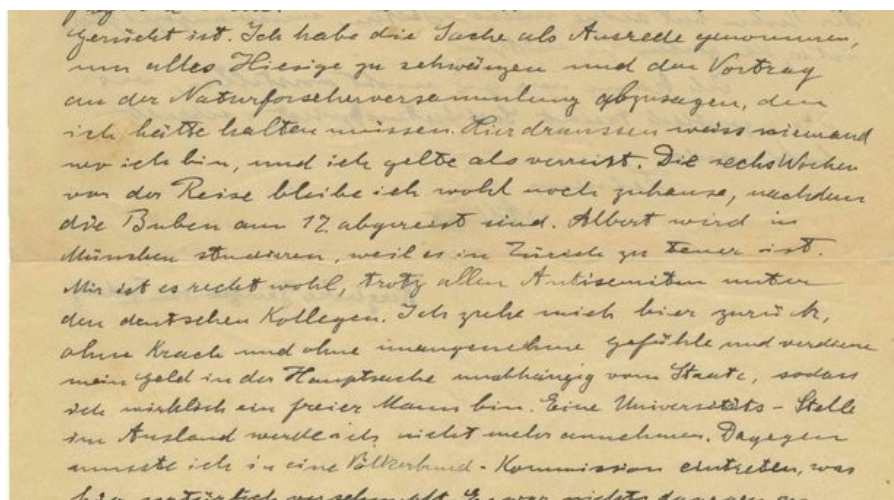 gerückt ist. Ich habe die Sache als Ausrede genommen,
um alles Hiesige zu schwänzen und den Vortrag
an der Naturforscherversammlung abzusagen, den
ich hätte halten müssen. Hier draussen weiss niemand
wo ich bin, und ich gelte als verreist. Die sechs Wochen
vor der Reise bleibe ich wohl noch zuhause, nachdem
die Buben am 17. abgereist sind. Albert wird in
München studieren, weil es in Zürich zu teuer ist.
Mir ist es recht wohl, trotz allen Antisemiten unter
den deutschen Kollegen. Ich ziehe mich hier zurück,
ohne Krach und ohne unangenehme Gefühle und verdiene
mein Geld in der Hauptsache unabhängig vom Staate, sodass
ich wirklich ein freier Mann bin. Eine Universitäts-Stelle
im Ausland werde ich nicht mehr annehmen. Dagegen
musste ich in eine Völkerbund-Kommission eintreten, was
hier natürlich verschnupft. Es war nichts dagegen zu